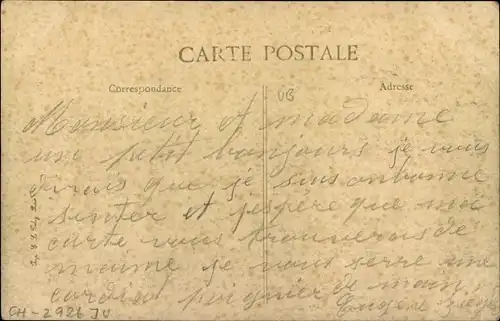 CARTE POSTALE
Correspondance
Adresse
UB
Monsieur et madame
une petit bonjours je vous
dirais que je suis onbonne
senter et j'espère que ma
carte vous trouverais de
maime je vous serre une
cordial poignier de main
Eugène
CH-2926 JU